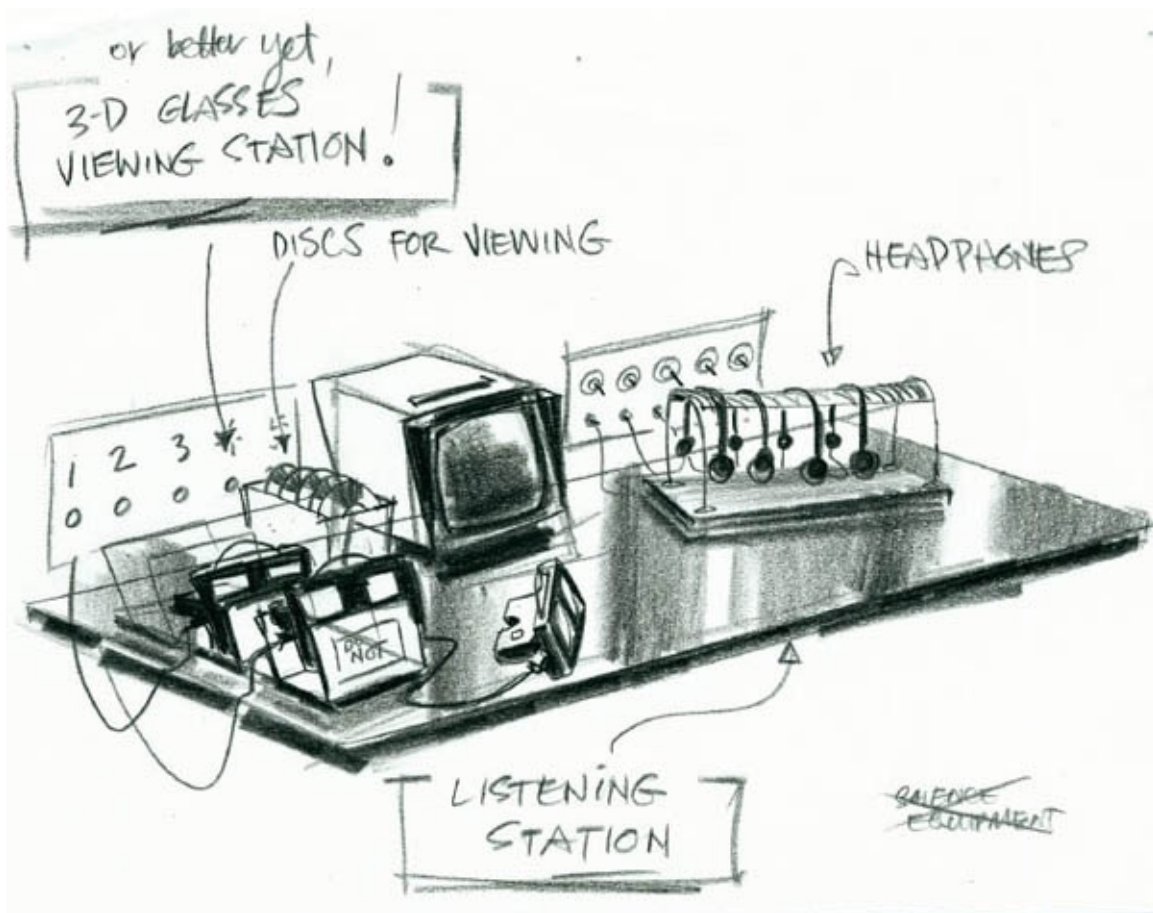 or better yet,
3-D GLASSES
VIEWING STATION!
DISCS FOR VIEWING
HEADPHONES
1 2 3
DO
NOT
LISTENING
STATION
SCIENCE
EQUIPMENT